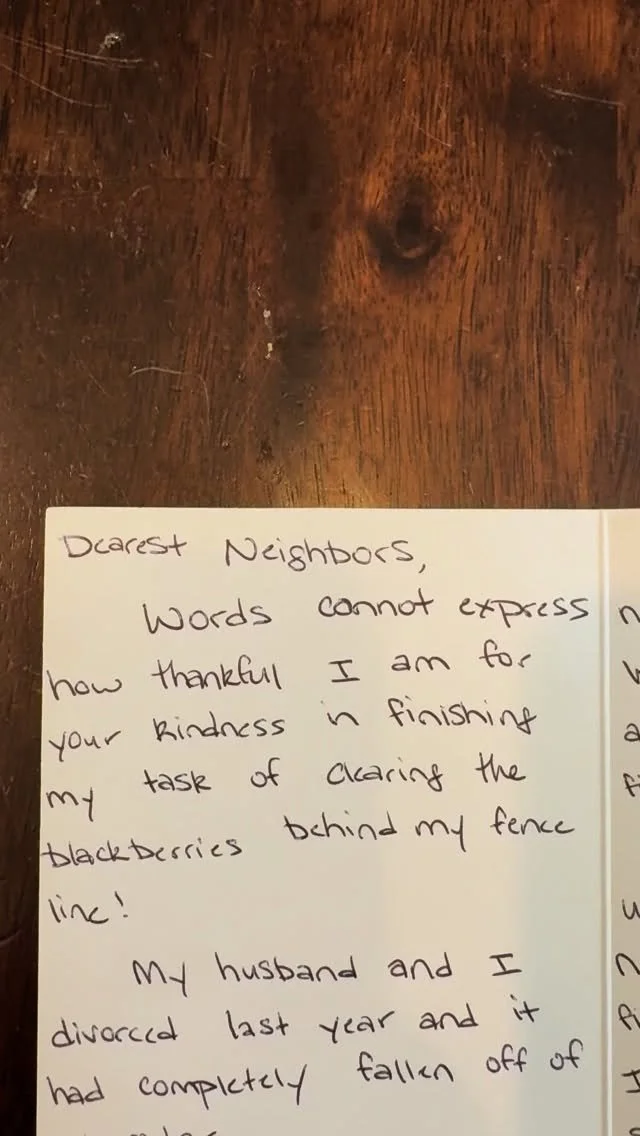 Dearest Neighbors,
Words cannot express
how thankful I am for
your kindness in finishing
my task of clearing the
blackberries behind my fence
line!
My husband and I
divorced last year and it
had completely fallen off of